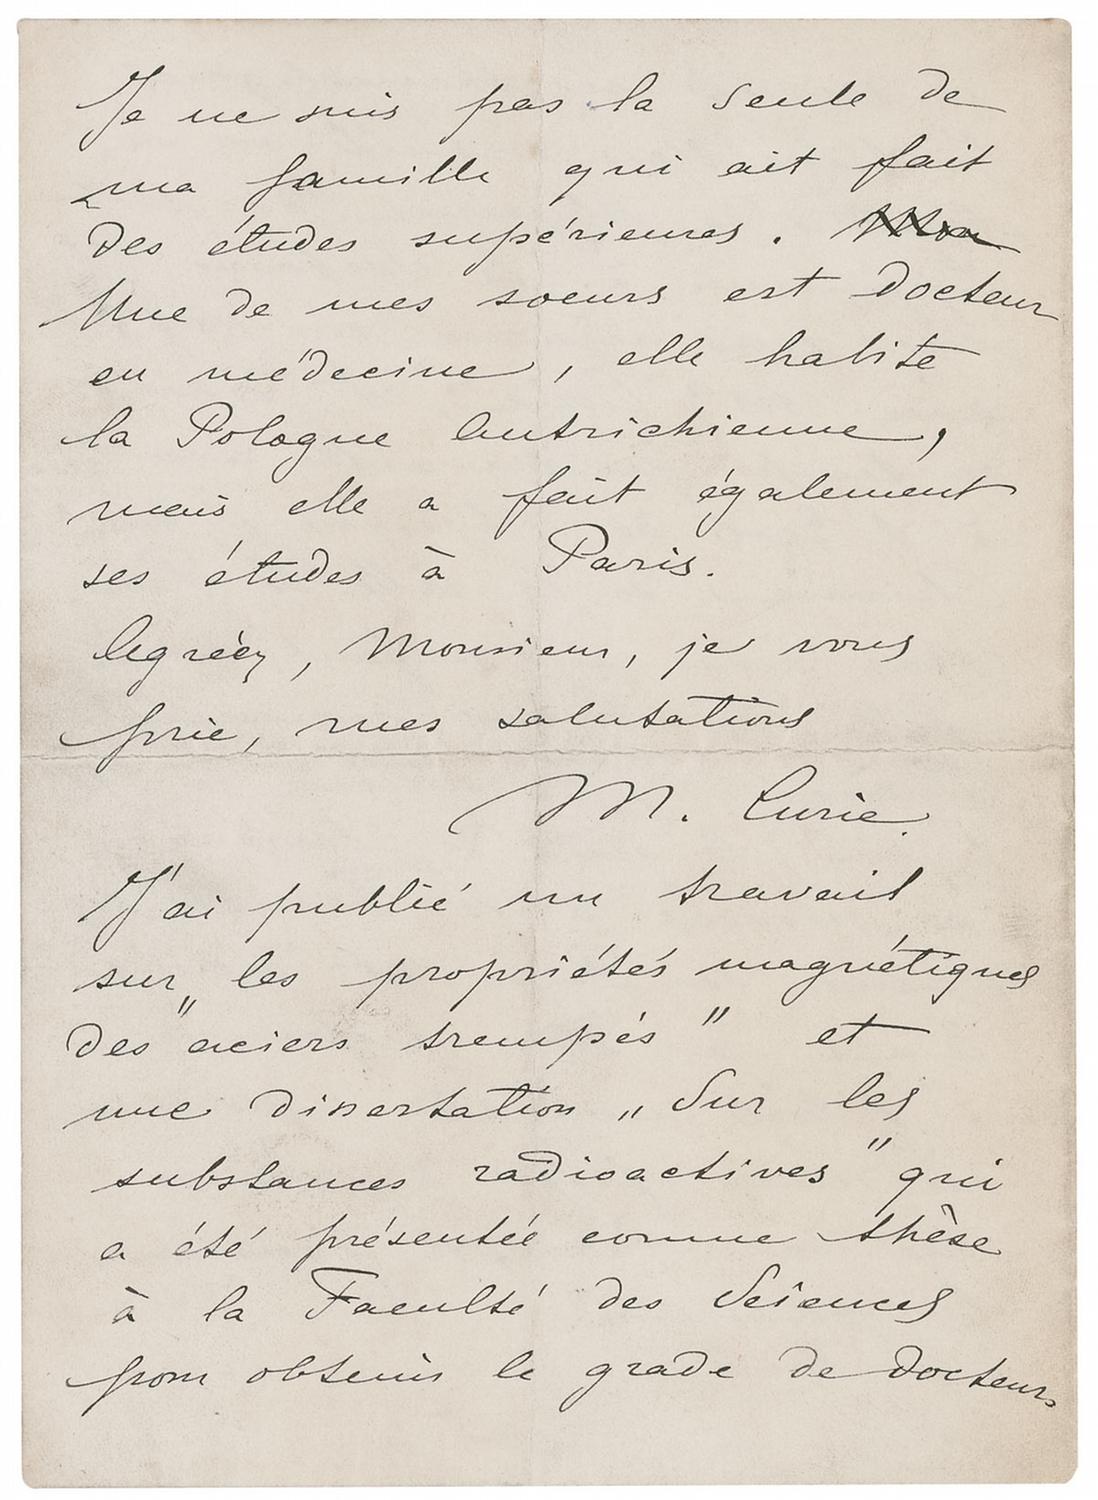 Je ne suis pas la seule de
ma famille qui ait fait
des études supérieures.
Une de mes soeurs est docteur
en médecine, elle habite
la Pologne Autrichienne,
mais elle a fait également
ses études à Paris.
Agréez, Monsieur, je vous
prie, mes salutations
M. Curie.
J'ai publié un travail
sur les propriétés magnétiques
des "aciers trempés" et
une dissertation „Sur les
substances radioactives" qui
a été présentée comme thèse
à la Faculté des Sciences
pour obtenir le grade de docteur.